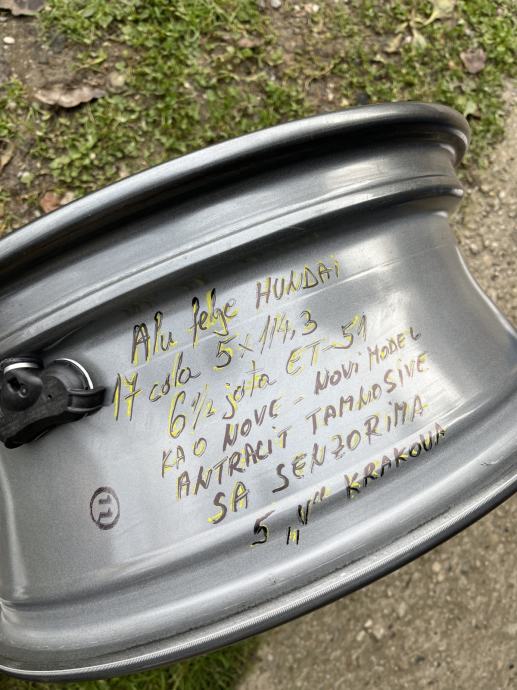 Alu felge HUNDAi
17 cola 5x114,3
6 1/2 jota ET-51
KAO NOVE - NOVi MODEL
ANTRACiT TAMNOSiVE
SA SENZORiMA
5 „V" KRAKOVA